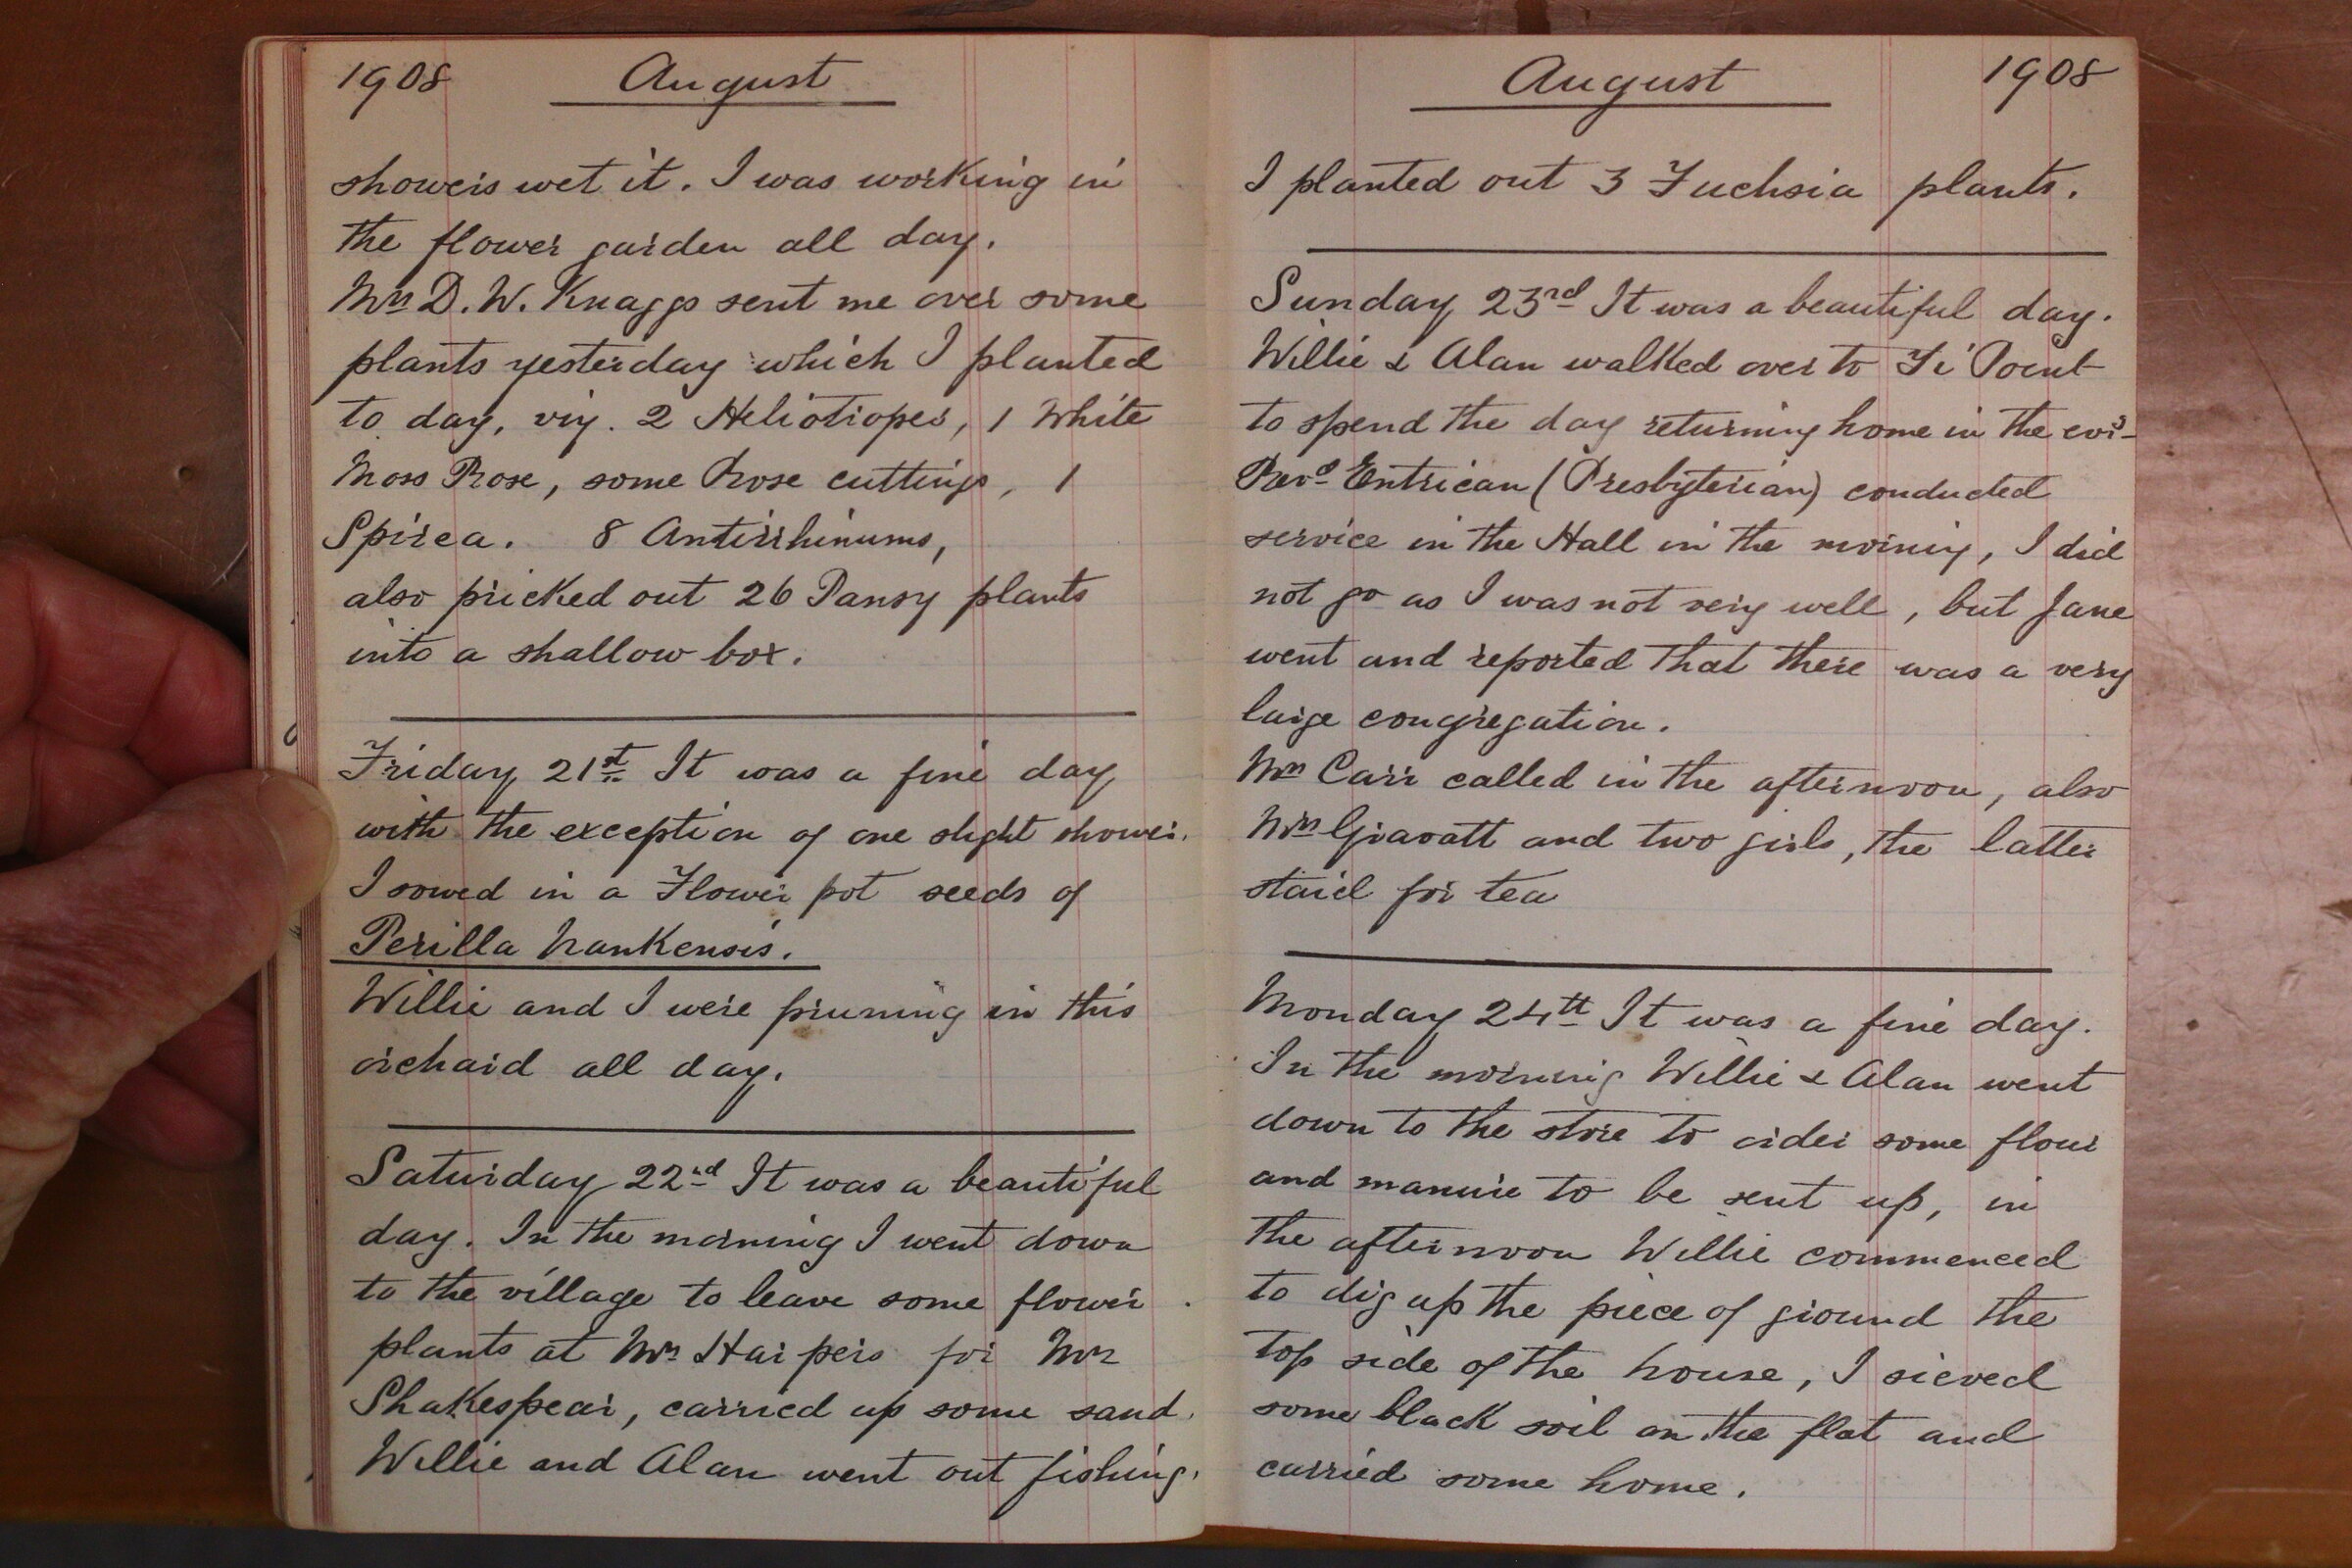 1908 August
showers wet it. I was working in
the flower garden all day.
Mrs D. W. Knaggs sent me over some
plants yesterday which I planted
to day, viz. 2 Heliotropes, 1 White
Moss Rose, some Rose cuttings, 1
Spirea. 8 Antirrhinums,
also pricked out 26 Pansy plants
into a shallow box.
Friday 21st It was a fine day
with the exception of one slight shower.
I sowed in a Flower pot seeds of
Perilla Nankensis.
Willie and I were pruning in this
orchard all day.
Saturday 22nd It was a beautiful
day. In the morning I went down
to the village to leave some flower
plants at Mrs Harpers for Mrs
Shakespear, carried up some sand.
Willie and Alan went out fishing.
August 1908
I planted out 3 Fuchsia plants.
Sunday 23rd It was a beautiful day.
Willie & Alan walked over to Ti Point
to spend the day returning home in the
Revd Entrican (Presbyterian) conducted
service in the Hall in the morning, I did
not go as I was not very well, but Jane
went and reported that there was a very
large congregation.
Mrs Carr called in the afternoon, also
Mrs Gravatt and two girls, the latter
staid for tea
Monday 24th It was a fine day.
In the morning Willie & Alan went
down to the store to order some flour
and manure to be sent up, in
the afternoon Willie commenced
to dig up the piece of ground the
top side of the house, I sieved
some black soil on the flat and
carried some home.